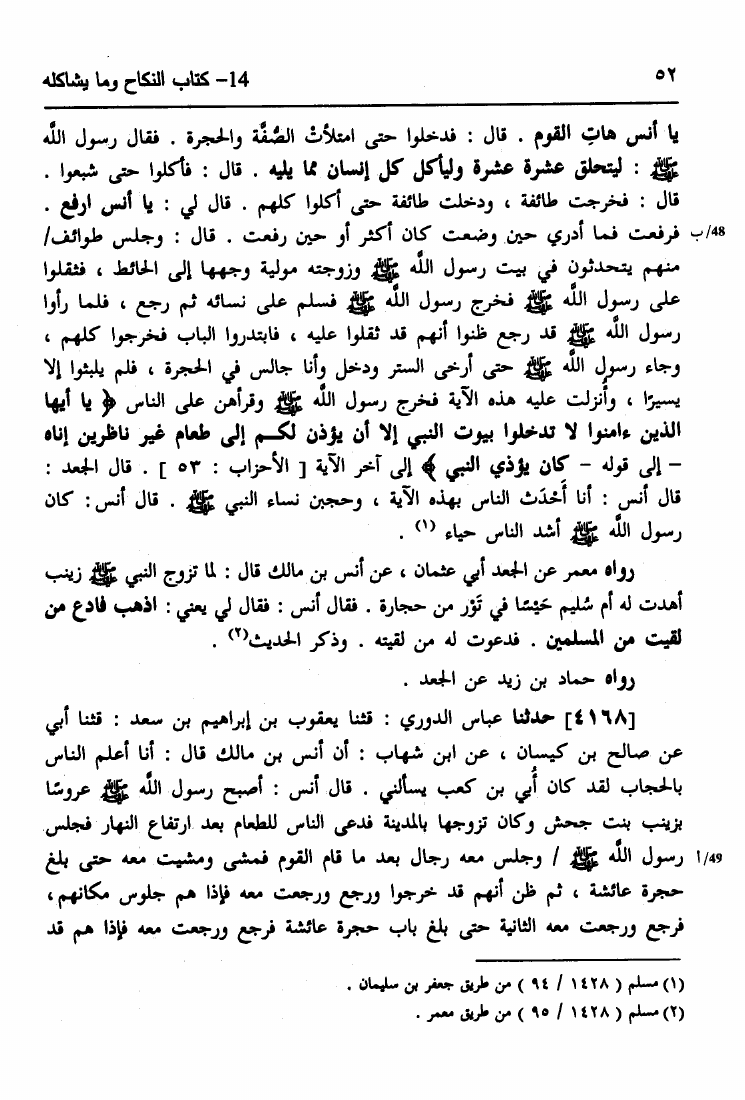 ٥٢
14- كتاب النكاح وما يشاكله
يا أنس هاتِ القوم . قال : فدخلوا حتى امتلأتْ الصُّفَّة والحجرة . فقال رسول اللَّه
ﷺ : ليتحلق عشرة عشرة وليأكل كل إنسان مما يليه . قال : فأكلوا حتى شبعوا .
قال : فخرجت طائفة ، ودخلت طائفة حتى أكلوا كلهم . قال لي : يا أنس ارفع .
48/ب فرفعت فما أدري حين وضعت كان أكثر أو حين رفعت . قال : وجلس طوائف/
منهم يتحدثون في بيت رسول اللَّه ﷺ وزوجته مولية وجهها إلى الحائط ، فثقلوا
على رسول اللَّه ﷺ فخرج رسول اللَّه ﷺ فسلم على نسائه ثم رجع ، فلما رأوا
رسول اللَّه ﷺ قد رجع ظنوا أنهم قد ثقلوا عليه ، فابتدروا الباب فخرجوا كلهم ،
وجاء رسول اللَّه ﷺ حتى أرخى الستر ودخل وأنا جالس في الحجرة ، فلم يلبثوا إلا
يسيرًا ، وأُنزلت عليه هذه الآية فخرج رسول اللَّه ﷺ وقرأهن على الناس ﴿ يا أيها
الذين ءامنوا لا تدخلوا بيوت النبي إلا أن يؤذن لكـم إلى طعام غير ناظرين إناه
– إلى قوله – كان يؤذي النبي ﴾ إلى آخر الآية [ الأحزاب : ٥٣ ] . قال الجعد :
قال أنس : أنا أَحْدَث الناس بهذه الآية ، وحجبن نساء النبي ﷺ . قال أنس : كان
رسول اللَّه ﷺ أشد الناس حياء (١) .
رواه معمر عن الجعد أبي عثمان ، عن أنس بن مالك قال : لما تزوج النبي ﷺ زينب
أهدت له أم سُليم حَيْسًا في تَوْر من حجارة . فقال أنس : فقال لي يعني : اذهب فادع من
لقيت من المسلمين . فدعوت له من لقيته . وذكر الحديث(٢) .
رواه حماد بن زيد عن الجعد .
[٤١٦٨] حدثنا عباس الدوري : قثنا يعقوب بن إبراهيم بن سعد : قثنا أبي
عن صالح بن كيسان ، عن ابن شهاب : أن أنس بن مالك قال : أنا أعلم الناس
بالحجاب لقد كان أُبي بن كعب يسألني . قال أنس : أصبح رسول اللَّه ﷺ عروسًا
بزينب بنت جحش وكان تزوجها بالمدينة فدعى الناس للطعام بعد ارتفاع النهار فجلس
49/أ رسول اللَّه ﷺ / وجلس معه رجال بعد ما قام القوم فمشى ومشيت معه حتى بلغ
حجرة عائشة ، ثم ظن أنهم قد خرجوا ورجع ورجعت معه فإذا هم جلوس مكانهم،
فرجع ورجعت معه الثانية حتى بلغ باب حجرة عائشة فرجع ورجعت معه فإذا هم قد
(١) مسلم ( ١٤٢٨ / ٩٤ ) من طريق جعفر بن سليمان .
(٢) مسلم ( ١٤٢٨ / ٩٥ ) من طريق معمر .